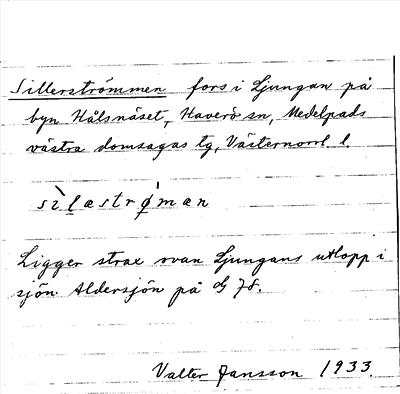 Sillerströmmen fors i Ljungan på
byn Hålsnäset, Haverö sn, Medelpads
västra domsagas tg, Västernorrl. l.
sìlæstrǿmæn
Ligger strax ovan Ljungans utlopp i
sjön Aldersjön på
Valter Jansson 1933.